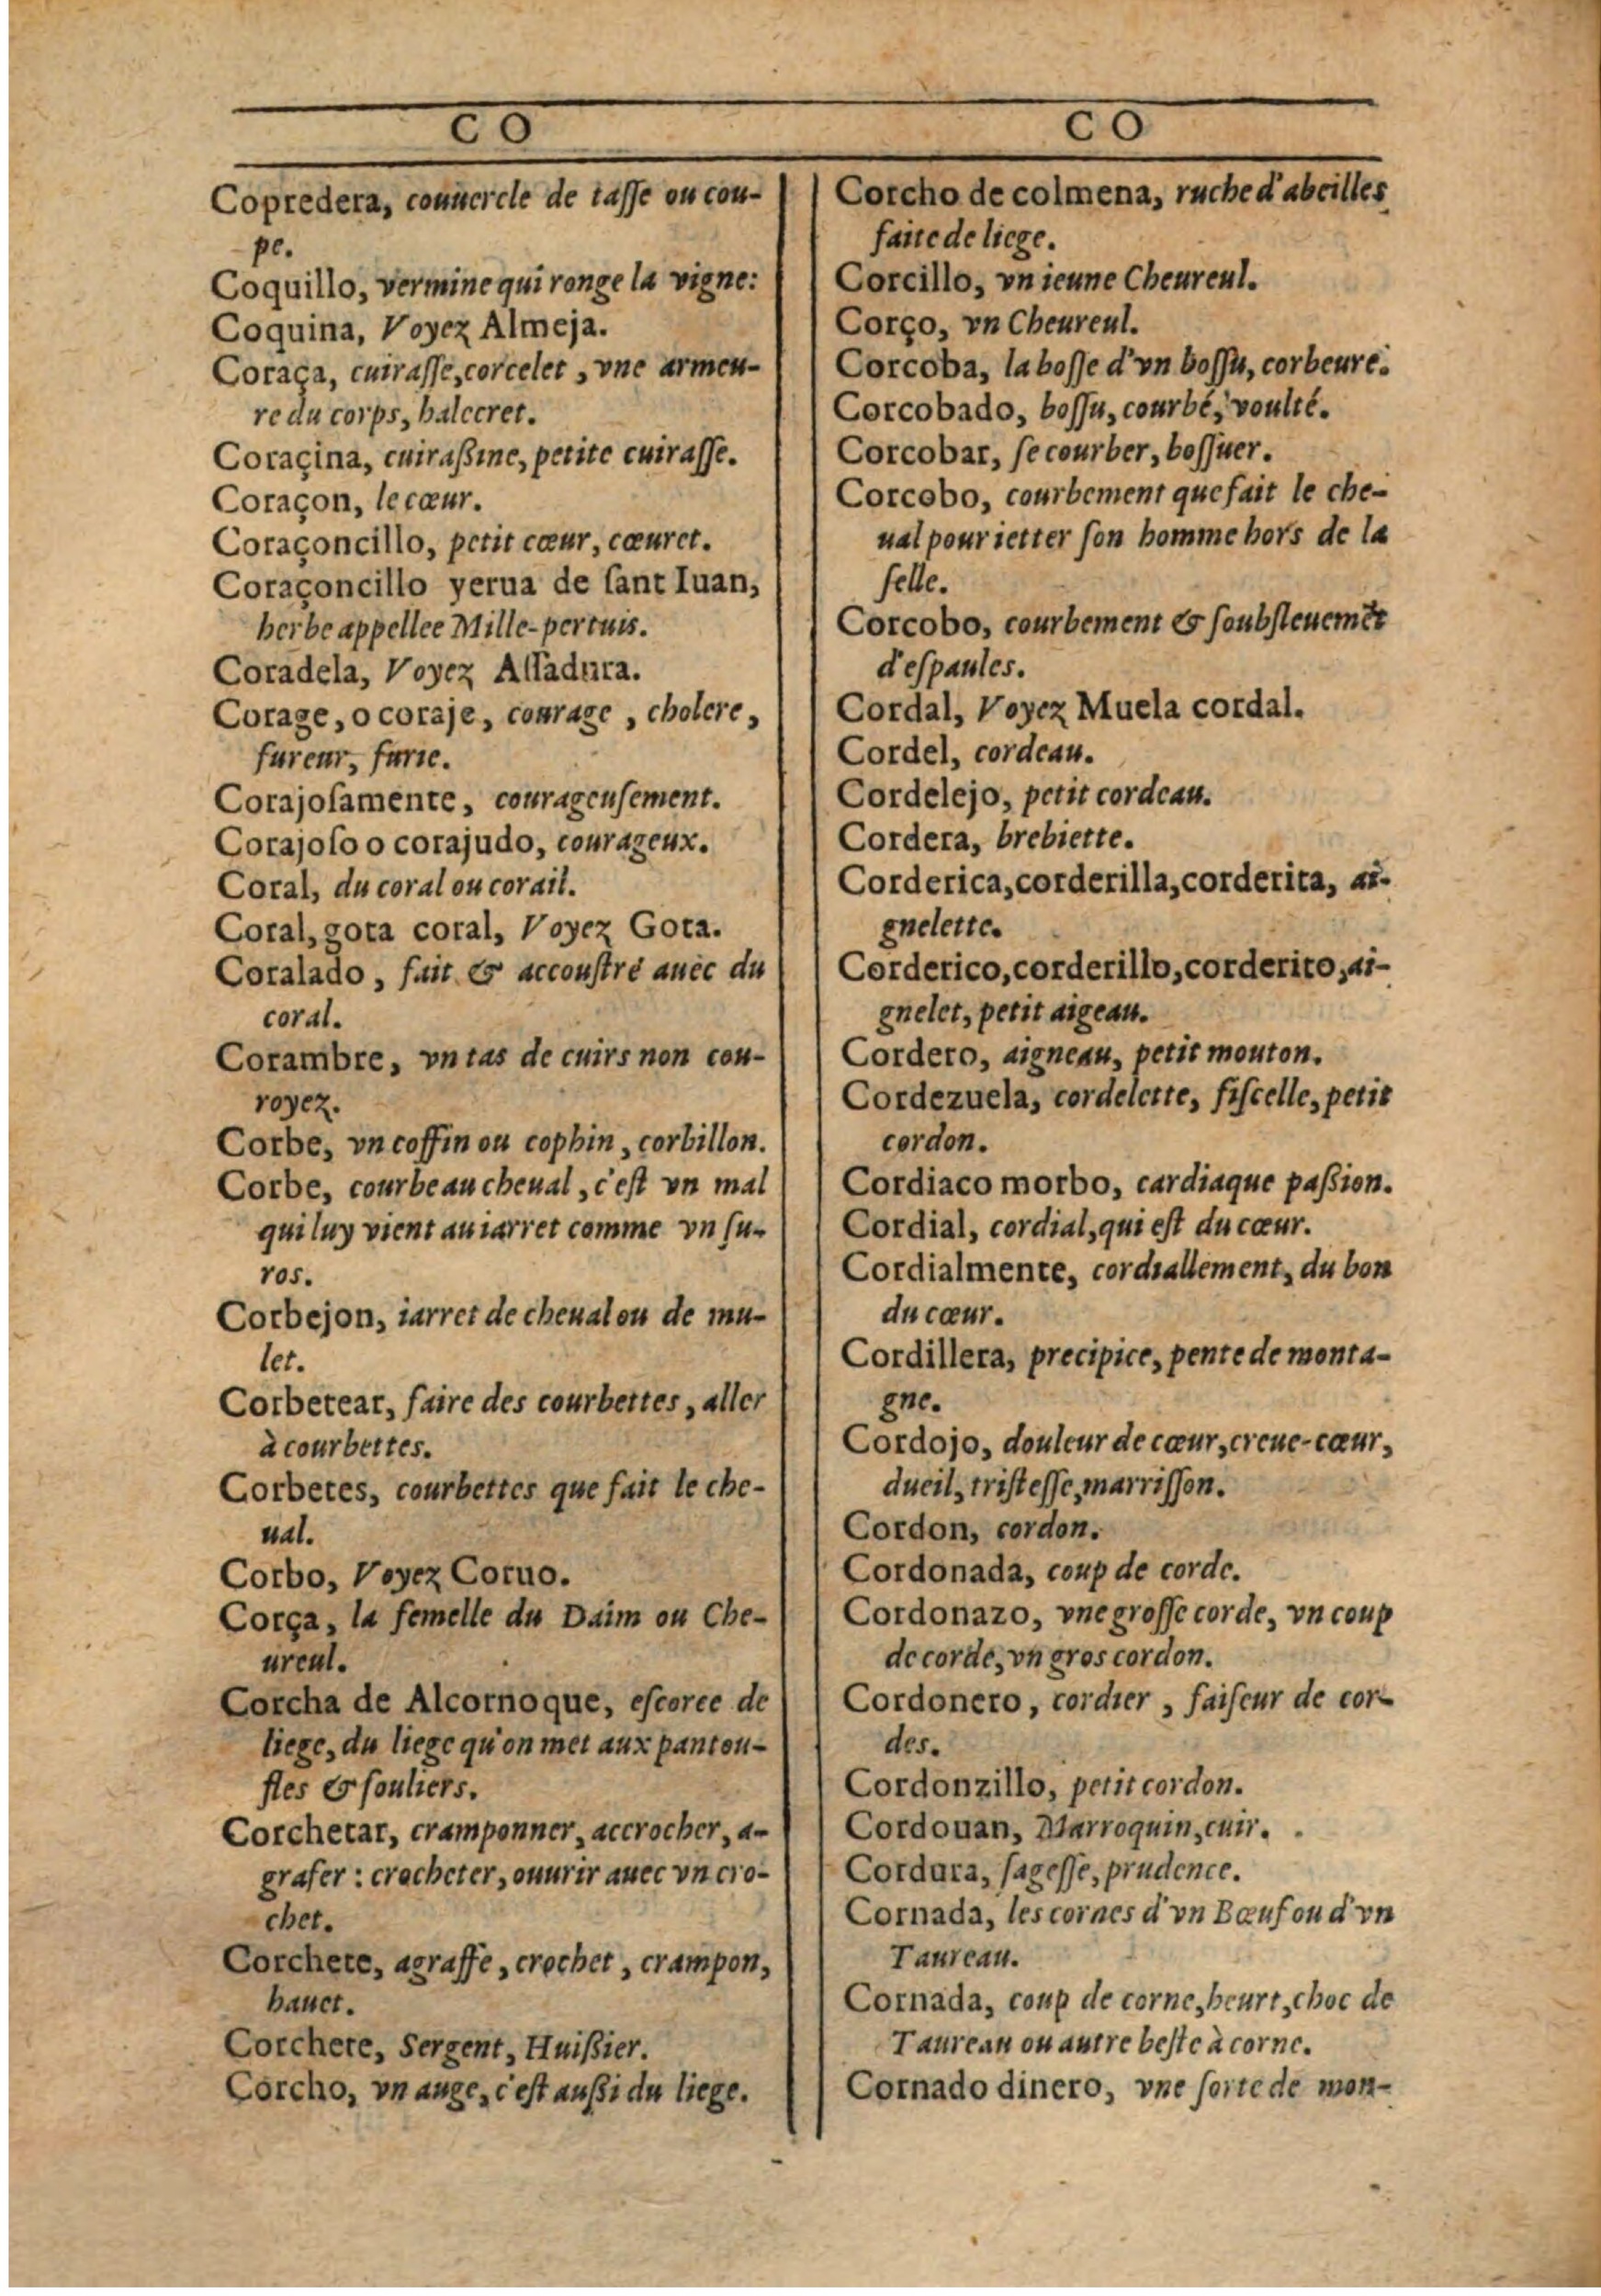 C O
Copredera, couuercle de tasse ou cou-
pe.
Coquillo, vermine qui ronge la vigne:
Coquina, Voyez Almeja.
Coraça, cuirasse, corcelet, vne armeu-
re du corps, halecret.
Coraçina, cuiraßine, petite cuirasse.
Coraçon, le cœur.
Coraçoncillo, petit cœur, cœuret.
Coraçoncillo yerua de ſant Iuan,
herbe appellee Mille-pertuis.
Coradela, Voyez Aſſadura.
Corage, o coraje, courage, cholere,
fureur, furie.
Corajoſamente, courageuſement.
Corajoſo o corajudo, courageux.
Coral, du coral ou corail.
Coral, gota coral, Voyez Gota.
Coralado, fait & accouſtré auec du
coral.
Corambre, vn tas de cuirs non cou-
royez.
Corbe, vn coffin ou cophin, corbillon.
Corbe, courbe au cheual, c'eſt vn mal
qui luy vient au iarret comme vn ſu-
ros.
Corbejon, iarret de cheual ou de mu-
let.
Corbetear, faire des courbettes, aller
à courbettes.
Corbetes, courbettes que fait le che-
ual.
Corbo, Voyez Coruo.
Corça, la femelle du Daim ou Che-
ureul.
Corcha de Alcornoque, eſcorce de
liege, du liege qu'on met aux pantou-
fles & ſouliers.
Corchetar, cramponner, accrocher, a-
grafer : crocheter, ouurir auec vn cro-
chet.
Corchete, agraffe, crochet, crampon,
hauet.
Corchete, Sergent, Huißier.
Corcho, vn auge, c'eſt außi du liege.
C O
Corcho de colmena, ruche d'abeilles
faite de liege.
Corcillo, vn ieune Cheureul.
Corço, vn Cheureul.
Corcoba, la boſſe d'vn boſſu, corbeure.
Corcobado, boſſu, courbé, voulté.
Corcobar, ſe courber, boſſuer.
Corcobo, courbement que fait le che-
ual pour ietter ſon homme hors de la
ſelle.
Corcobo, courbement & ſoubſleuemēt
d'eſpaules.
Cordal, Voyez Muela cordal.
Cordel, cordeau.
Cordelejo, petit cordeau.
Cordera, brebiette.
Corderica, corderilla, corderita, ai-
gnelette.
Corderico, corderillo, corderito, ai-
gnelet, petit aigeau.
Cordero, aigneau, petit mouton.
Cordezuela, cordelette, fiſcelle, petit
cordon.
Cordiaco morbo, cardiaque paßion.
Cordial, cordial, qui eſt du cœur.
Cordialmente, cordiallement, du bon
du cœur.
Cordillera, precipice, pente de monta-
gne.
Cordojo, douleur de cœur, creue-cœur,
dueil, triſteſſe, marriſſon.
Cordon, cordon.
Cordonada, coup de corde.
Cordonazo, vne groſſe corde, vn coup
de corde, vn gros cordon.
Cordonero, cordier, faiſeur de cor-
des.
Cordonzillo, petit cordon.
Cordouan, Marroquin, cuir.
Cordura, ſageſſe, prudence.
Cornada, les cornes d'vn Bœuf ou d'vn
Taureau.
Cornada, coup de corne, heurt, choc de
Taureau ou autre beſte à corne.
Cornado dinero, vne ſorte de mon-